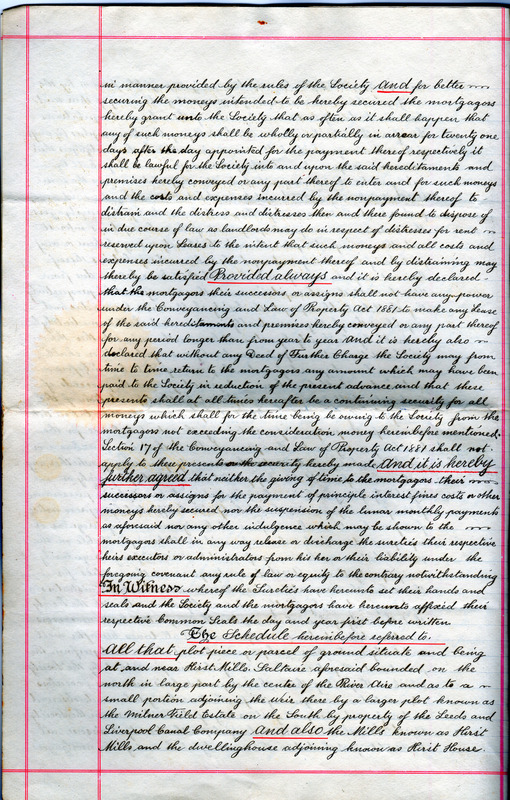 in manner provided by the rules of the Society And for better
securing the moneys intended to be hereby secured the mortgagors
hereby grant unto the Society that as often as it shall happen that
any of such moneys shall be wholly or partially in arrear for twenty one
days after the day appointed for the payment thereof respectively it
shall be lawful for the Society into and upon the said hereditaments and
premises hereby conveyed or any part thereof to enter and for such moneys
and the costs and expenses incurred by the nonpayment thereof to
distrain and the distress and distresses then and there found to dispose of
in due course of law as landlords may do in respect of distresses for rent
reserved upon Leases to the intent that such moneys and all costs and
expenses incurred by the nonpayment thereof and by distraining may
thereby be satisfied Provided always and it is hereby declared
that the mortgagors their successors or assigns shall not have any power
under the Conveyancing and Law of Property Act 1881 to make any Lease
of the said hereditaments and premises hereby conveyed or any part thereof
for any period longer than from year to year And it is hereby also
declared that without any Deed of Further Charge the Society may from
time to time return to the mortgagors any amount which may have been
paid to the Society in reduction of the present advance and that these
presents shall at all times hereafter be a continuing security for all
moneys which shall for the time being be owing to the Society from the
mortgagors not exceeding the consideration money hereinbefore mentioned.
Section 17 of the Conveyancing and Law of Property Act 1881 shall not
apply to these presents or the security hereby made And it is hereby
further agreed that neither the giving of time to the mortgagors their
successors or assigns for the payment of principle interest fines costs or other
moneys hereby secured nor the suspension of the lunar monthly payments
as aforesaid nor any other indulgence which may be shown to the
mortgagors shall in any way release or discharge the sureties their respective
heirs executors or administrators from his her or their liability under the
foregoing covenant any rule of law or equity to the contrary notwithstanding
In Witness whereof the Sureties have hereunto set their hands and
seals and the Society and the mortgagors have hereunto affixed their
respective Common Seals the day and year first before written
The Schedule hereinbefore referred to.
All that plot piece or parcel of ground situate and being
at and near Hirst Mills Saltaire aforesaid bounded on the
north in large part by the center of the River Aire and as to a
small portion adjoining the weir there by a larger plot known as
the Milner Field Estate on the South by property of the Leeds and
Liverpool Canal Company And also the Mills known as Hirst
Mills and the dwellinghouse adjoining known as Hirst House.